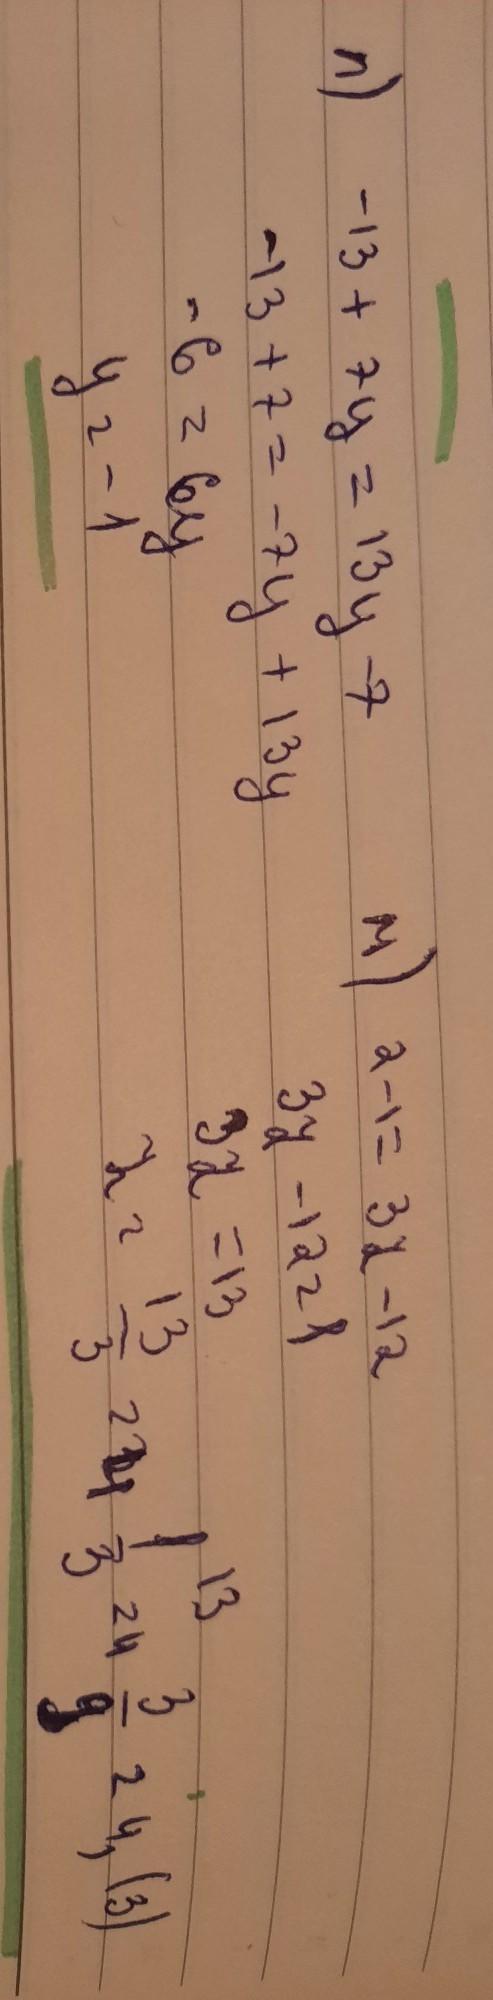 л) -13 + 7y = 13y - 7
-13 + 7 = -7y + 13y
-6 = 6y
y = -1
м) 2-1 = 3x - 12
3x - 12 = 1
3x = 13
x = 13/3 = 4 1/3 = 4 3/9 = 4,(3)
13